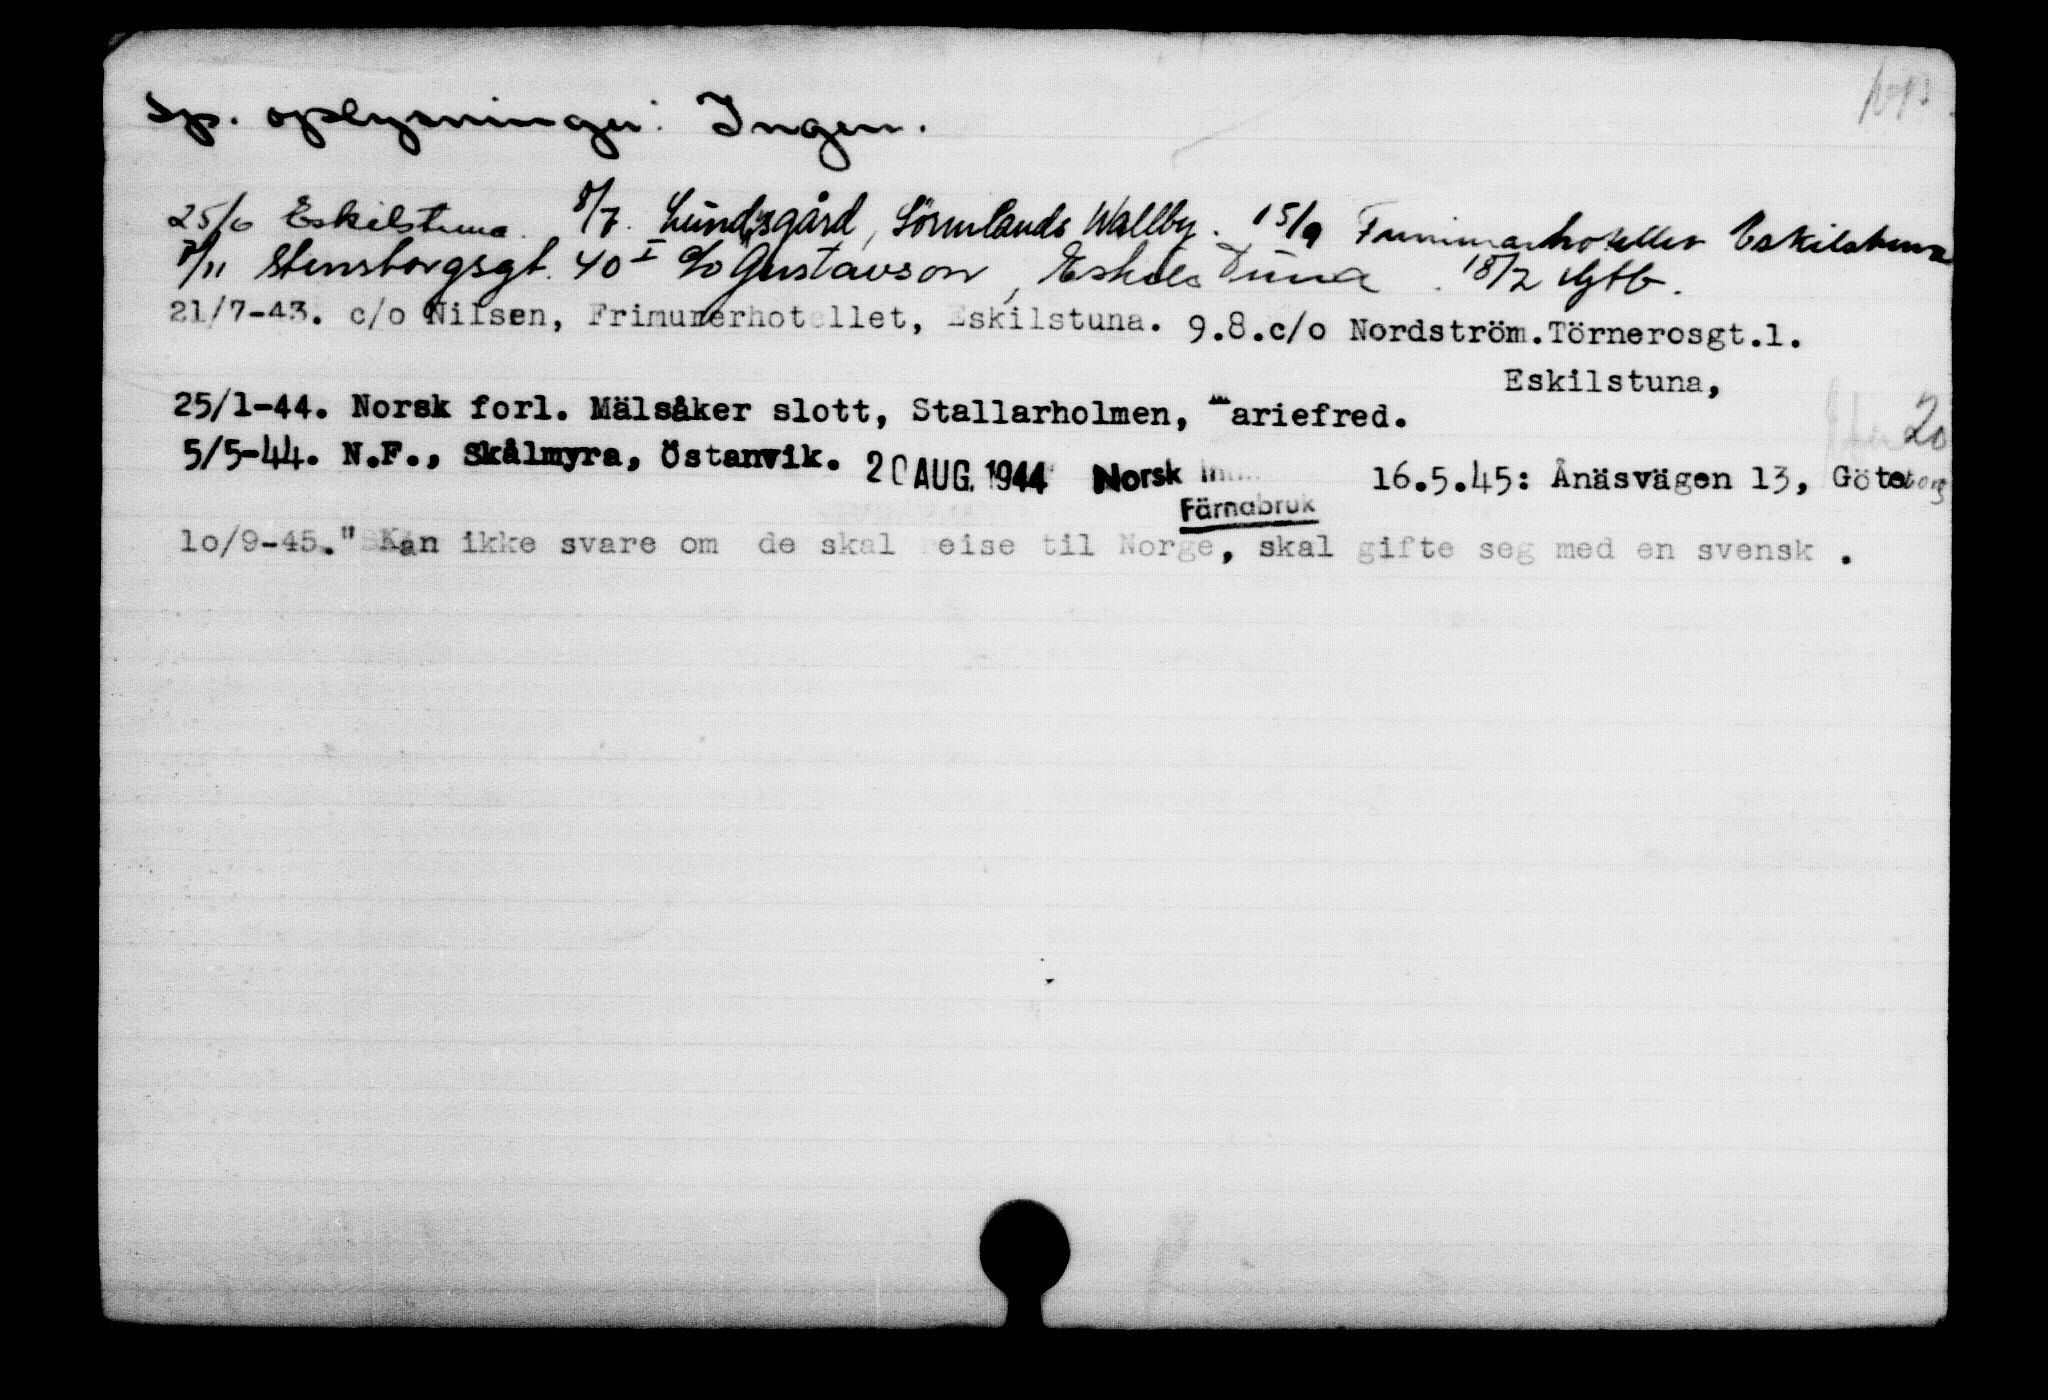 Sp. oplysninger: Ingen.
25/6 Eskilstuna. 8/7. Lundsgård, Sörmlands Wallby. 15/9 Frimurarhotellet Eskilstuna
8/11 Stensborgsgt. 40 I c/o Gustavson, Eskilstuna. 18/2
21/7-43. c/o Nilsen, Frimurerhotellet, Eskilstuna. 9.8.c/o Nordström.Törnerosgt.1.
Eskilstuna,
25/1-44. Norsk forl. Mälsåker slott, Stallarholmen, Mariefred.
20
5/5-44. N.F., Skålmyra, Östanvik. 20 AUG. 1944 Norsk 16.5.45: Ånäsvägen 13, Göteborg
Färnabruk
10/9-45." Kan ikke svare om de skal reise til Norge, skal gifte seg med en svensk .